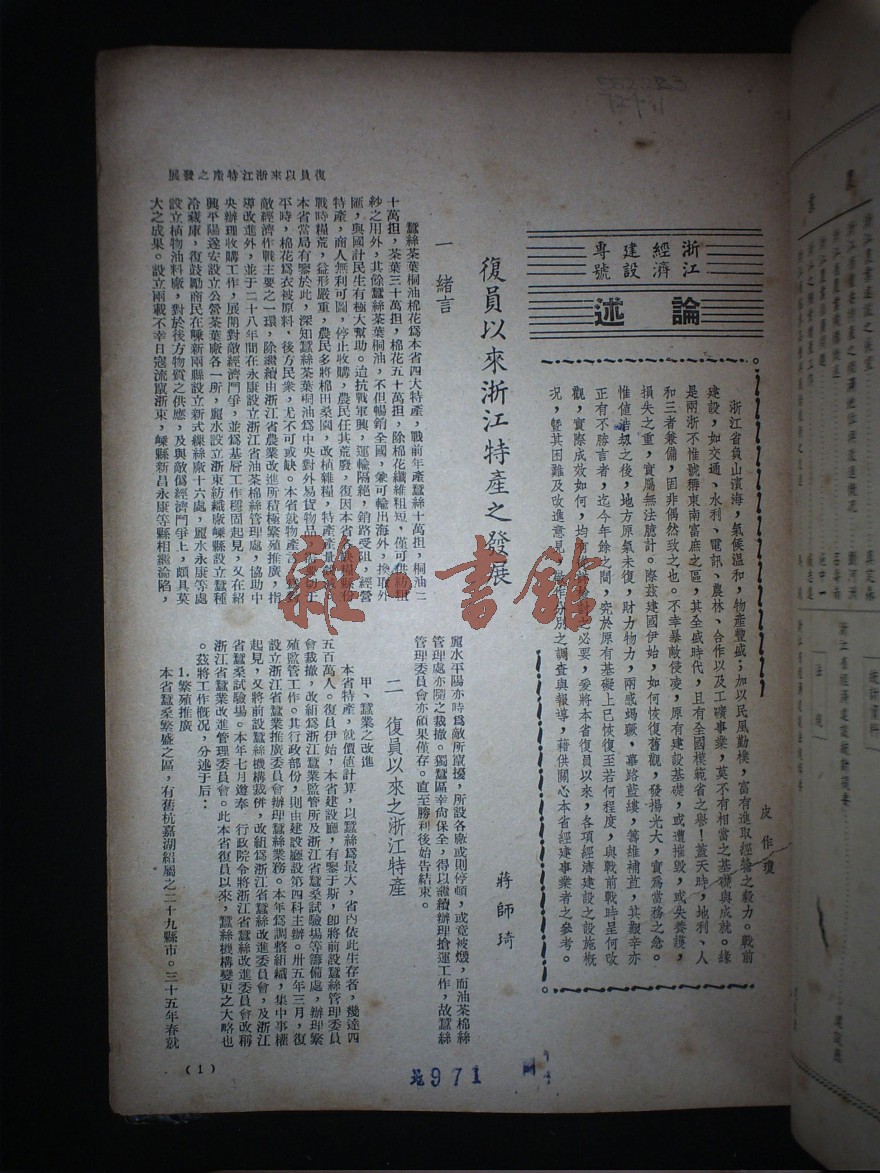 浙江
經濟
建設
專號
論述
皮作瓊
浙江省負山濱海，氣候溫和，物產豐盛；加以民風勤樸，富有進取經營之毅力。戰前
建設，如交通、水利、電訊、農林、合作以及工礦事業，莫不有相當之基礎與成就。緣
是兩浙不惟號稱東南富庶之區，其全盛時代，且有全國模範省之譽！蓋天時，地利、人
和三者兼備，固非偶然致之也。不幸暴敵侵凌，原有建設基礎，或遭摧毀，或失養護，
損失之重，實屬無法臆計。際茲建國伊始，如何恢復舊觀，發揚光大，實為當務之急。
惟值浩刼之後，地方原氣未復，財力物力，兩感竭蹶，篳路藍縷，籌維補苴，其艱辛亦
正有不勝言者，迄今年餘之間，究於原有基礎上已恢復至若何程度，與戰前戰時呈何改
觀，實際成效如何，均有
之必要，爰將本省復員以來，各項經濟建設之設施概
況，暨其困難及改進意見
作分別之調查與報導，藉供關心本省經建事業者之參考。
復員以來浙江特產之發展
蔣師琦
一　緒言
蠶絲茶葉桐油棉花爲本省四大特產，戰前年產蠶絲十萬担，桐油二
十萬担，茶葉三十萬担，棉花五十萬担，除棉花纖維粗短，僅可供紡粗
紗之用外，其餘蠶絲茶葉桐油，不但暢銷全國，兼可輸出海外，換取外
匯，與國計民生有極大幫助。迨抗戰軍興，運輸隔絕，銷路受阻，經營
特產，商人無利可圖，停止收購，農民任其荒廢，復因本省
戰時糧荒，益形嚴重，農民多將棉田桑園，改植雜糧，特產產量
本省當局有鑒於此，深知蠶絲茶葉桐油爲中央對外易貨物品，
平時，棉花爲衣被原料，後方民衆，尤不可或缺。本省就物產言，
敵經濟作戰主要之一環，除繼續由浙江省農業改進所積極繁殖推廣，指
導改進外，並于二十八年間在永康設立浙江省油茶棉絲管理處，協助中
央辦理收購工作，展開對敵經濟鬥爭，並爲基層工作穩固起見，又在紹
興平陽遂安設立公營茶葉廠各一所，麗水設立浙東紡織廠嵊縣設立蠶種
冷藏庫，復鼓勵商民在嵊新兩縣設立新式繅絲廠十六處，麗水永康等處
設立植物油料廠，對於後方物資之供應，及與敵僞經濟鬥爭上，頗具莫
大之成果。設立兩載不幸日寇流竄浙東，嵊縣新昌永康等縣相繼淪陷，
麗水平陽亦時爲敵所竄擾，所設各廠或則停頓，或竟被燬，而油茶棉絲
管理處亦隨之裁撤。獨蠶區幸尚保全，得以繼續辦理搶運工作，故蠶絲
管理委員會亦碩果僅存。直至勝利後始告結束。
二　復員以來之浙江特產
甲、蠶業之改進
本省特產，就價值計算，以蠶絲爲最大，省內依此生存者，幾達四
五百萬人。復員伊始，本省建設廳，有鑒于斯，卽將前設蠶絲管理委員
會裁撤，改組爲浙江蠶業監管所及浙江省蠶桑試驗場等籌備處，辦理繁
殖監管工作。其行政部份，則由建設廳設第四科主辦。卅五年三月，復
設立浙江省蠶業推廣委員會辦理蠶絲業務。本年爲調整組織，集中事權
起見，又將前設蠶絲機構裁併，改組爲浙江省蠶絲改進委員會，及浙江
省蠶桑試驗場。本年七月遵奉　行政院令將浙江省蠶絲改進委員會改稱
浙江省蠶業改進管理委員會。此本省復員以來，蠶絲機構變更之大略也
。茲將工作概況，分述于后：
1.繁殖推廣
本省蠶桑繁盛之區，有舊杭嘉湖紹屬之二十九縣市。三十五年春就
復員以來浙江特產之發展
(1)
971
雜書館